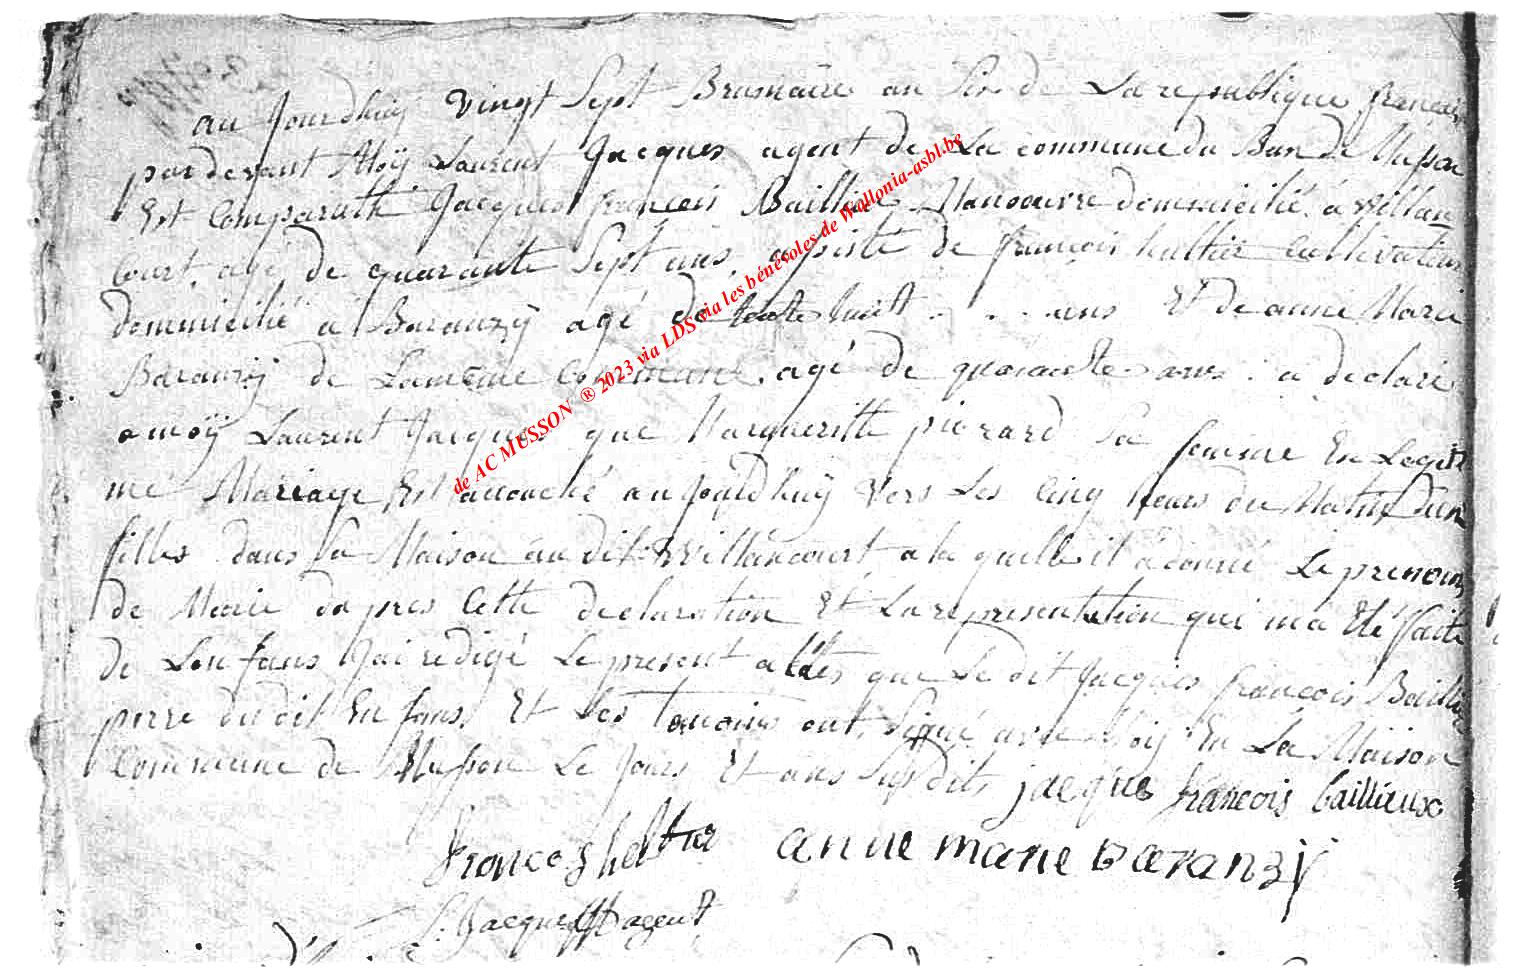 au jourdhuÿ vingt Sept Brumaire an Six de La republique francais
pardevant Moÿ Laurent Jacques agent de La commune du Ban de Musson
Est Comparuth Jacques francois Baillieux Manoeuvre domicilié a Willan
court agé de quarante Sept ans, asisté de françois halther Cultivateur
dommicilié a Baranzÿ agé de trente huit . . . ans Et de anne Marie
Baranzÿ de Lamême Commune . agé de quarante ans . a declaré
a moÿ Laurent Jacques que Margueritte pierard Sa femme En Legiti
me Mariage Est accouché aujourdhuÿ vers Les Cinq heures du Matin Dun
filles dans Sa Maison audit Willancourt a la quelle il a donné Le prenom
de Marie dapres Cette declaration Et La representation qui ma Eté faite
de Lenfans Jai redigé Le present acttes que Le dit Jacques françois Baillieux
perre dudit Enfans, Et Les temoins ont Signé avec Moÿ En La Maison
Commune de Musson Le Jours Et ans Susdits jacque francois baillieux
francois helter anne marie baranzÿ
L. Jacques agent
de AC MUSSON ® 2023 via LDS via les bénévoles de Wallonia-asbl.be